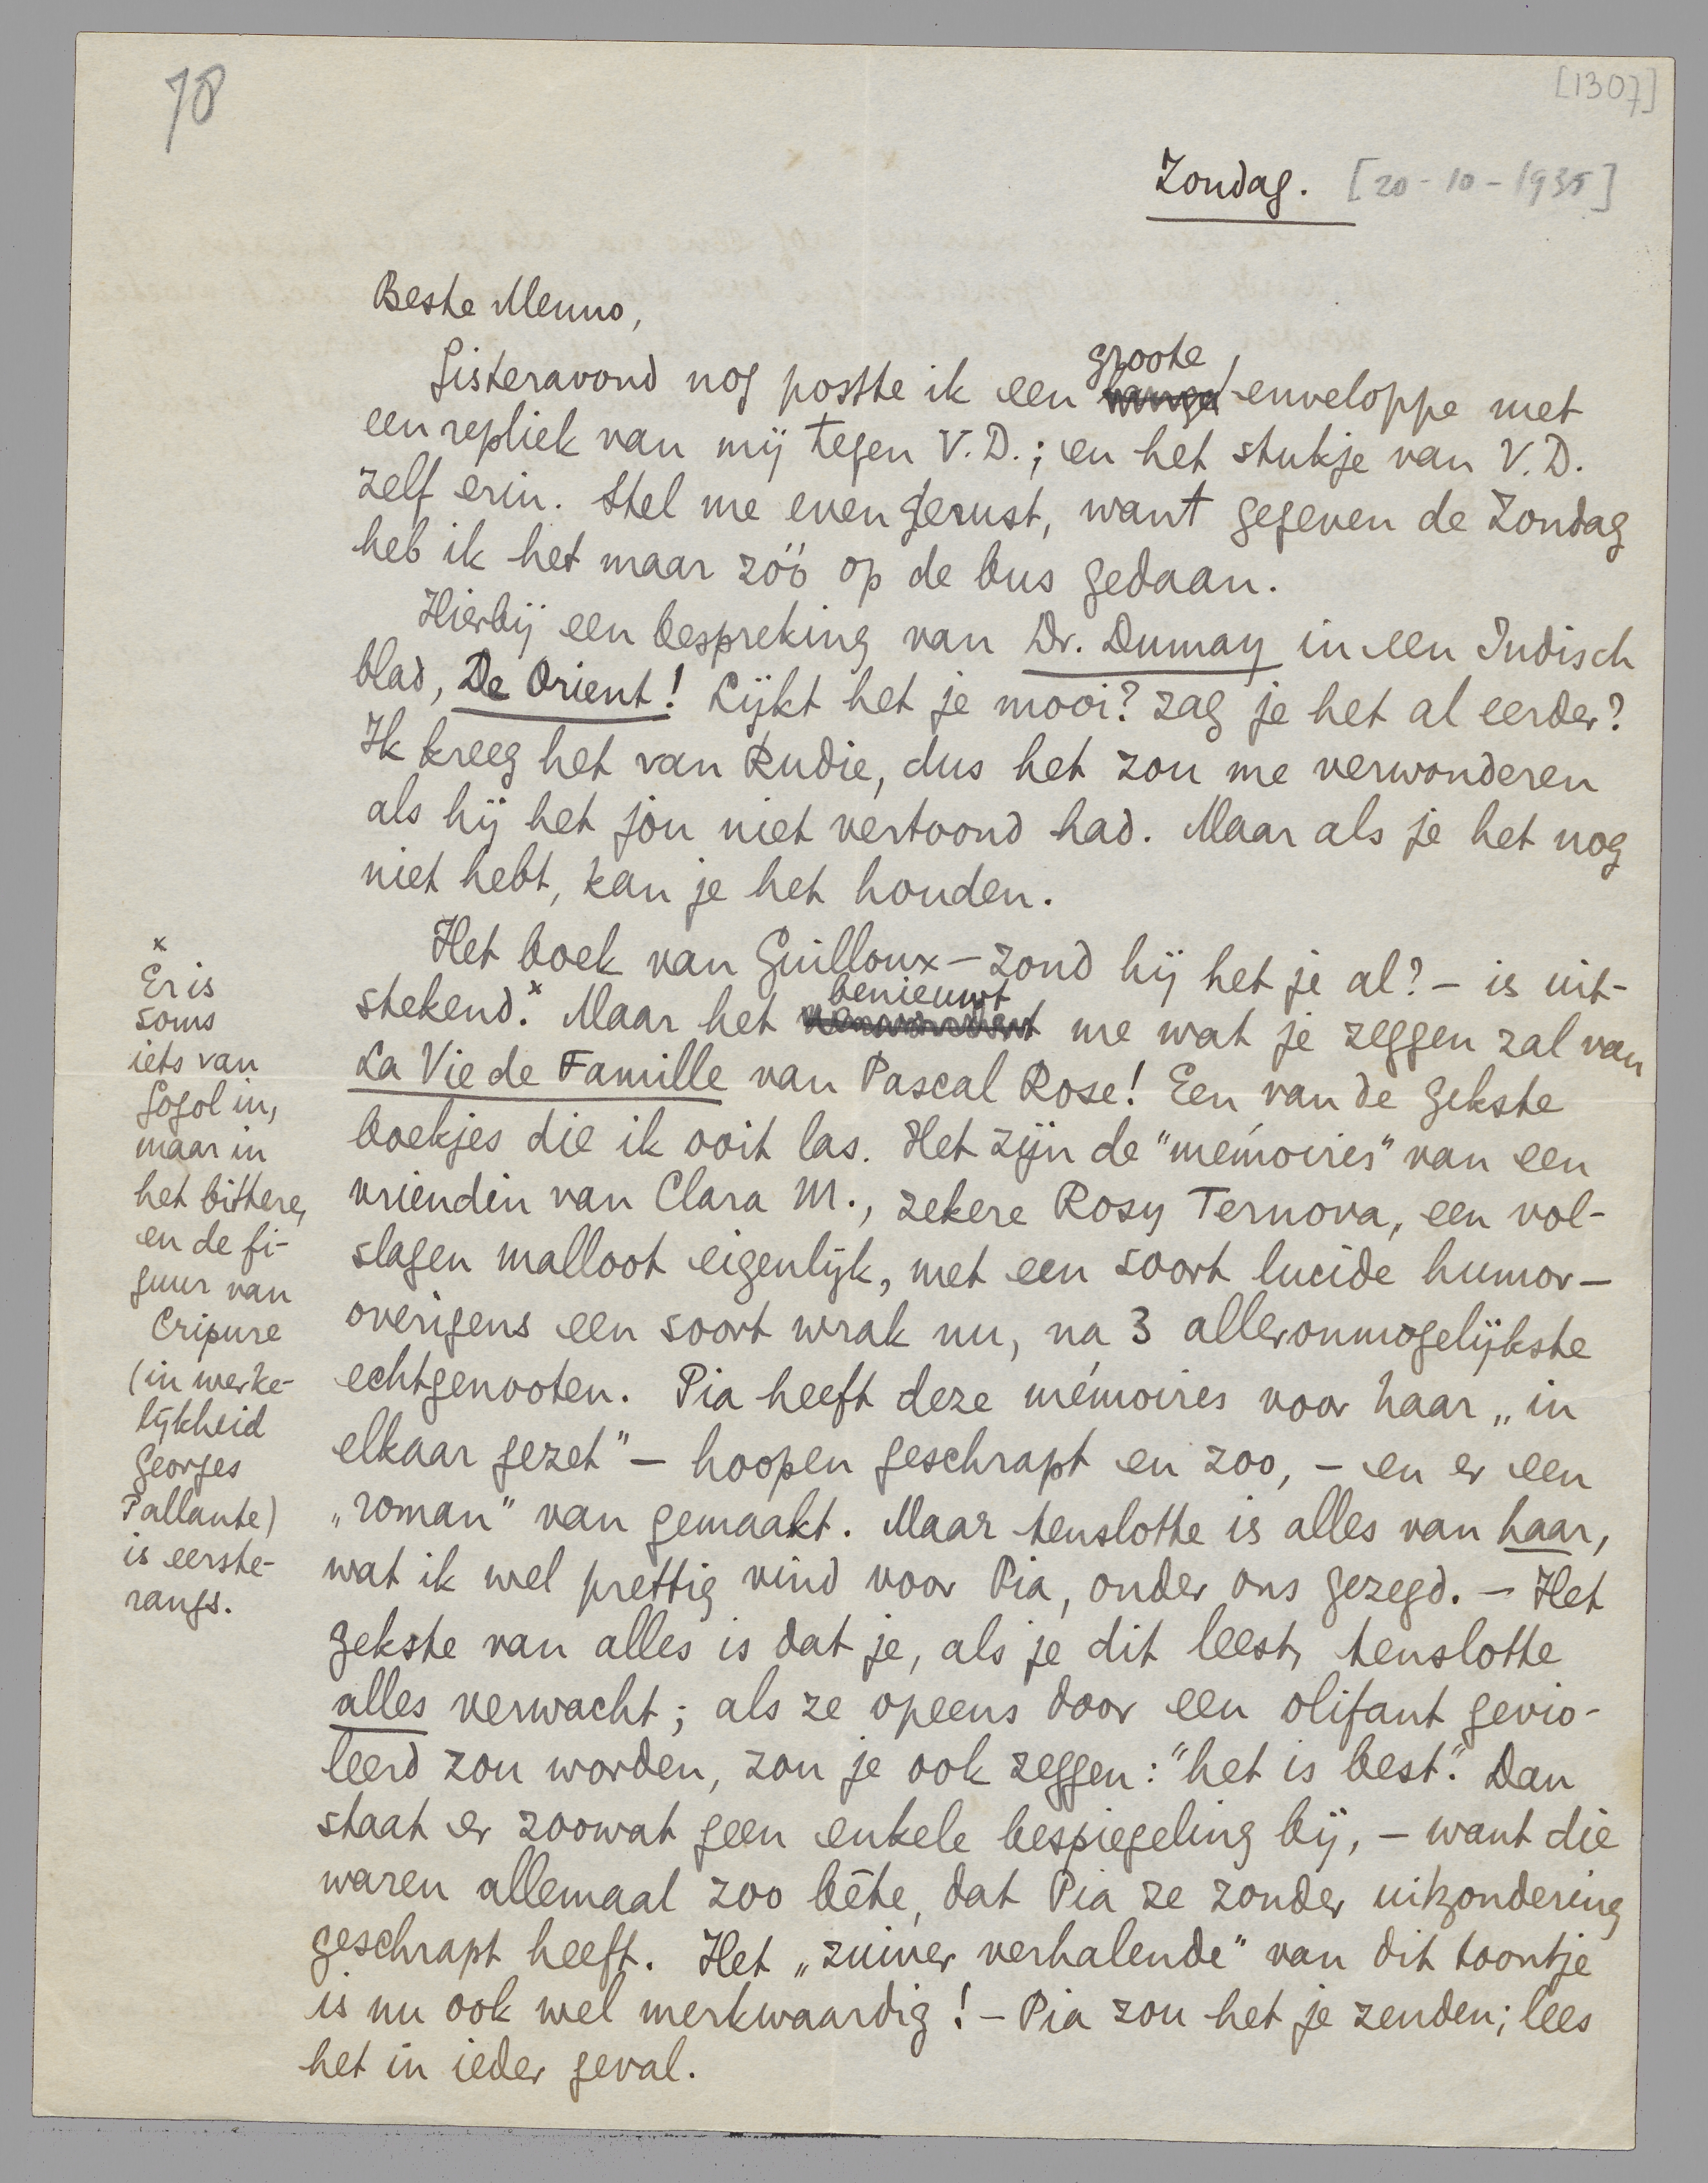 78
[1307]
Zondag. [20-10-1935]
Beste Menno,
Gisteravond nog postte ik een groote enveloppe met
een repliek van mij tegen V.D.; en het stukje van V.D.
zelf erin. Stel me even gerust, want gegeven de Zondag
heb ik het maar zóó op de bus gedaan.
Hierbij een bespreking van Dr. Dumay in een Indisch
blad, De Orient! Lijkt het je mooi? zag je het al eerder?
Ik kreeg het van Rudie, dus het zou me verwonderen
als hij het jou niet vertoond had. Maar als je het nog
niet hebt, kan je het houden.
Het boek van Guilloux – zond hij het je al? – is uit-
stekend.x Maar het benieuwt me wat je zeggen zal van
La Vie de Famille van Pascal Rose! Een van de gekste
boekjes die ik ooit las. Het zijn de "mémoires" van een
vriendin van Clara M., zekere Rosy Ternova, een vol-
slagen malloot eigenlijk, met een soort lucide humor –
overigens een soort wrak nu, na 3 alleronmogelijkste
echtgenooten. Pia heeft deze mémoires voor haar „in
elkaar gezet" – hoopen geschrapt en zoo, – en er een
„roman" van gemaakt. Maar tenslotte is alles van haar,
wat ik wel prettig vind voor Pia, onder ons gezegd. – Het
gekste van alles is dat je, als je dit leest, tenslotte
alles verwacht; als ze opeens door een olifant gevio-
leerd zou worden, zou je ook zeggen: "het is best". Dan
staat er zoowat geen enkele bespiegeling bij, – want die
waren allemaal zoo bête, dat Pia ze zonder uitzondering
geschrapt heeft. Het „zuiver verhalende" van dit toontje
is nu ook wel merkwaardig! – Pia zou het je zenden; lees
het in ieder geval.
x
Er is
soms
iets van
Gogol in,
maar in
het bittere,
en de fi-
guur van
Cripure
(in werke-
lijkheid
Georges
Pallante)
is eerste-
rangs.